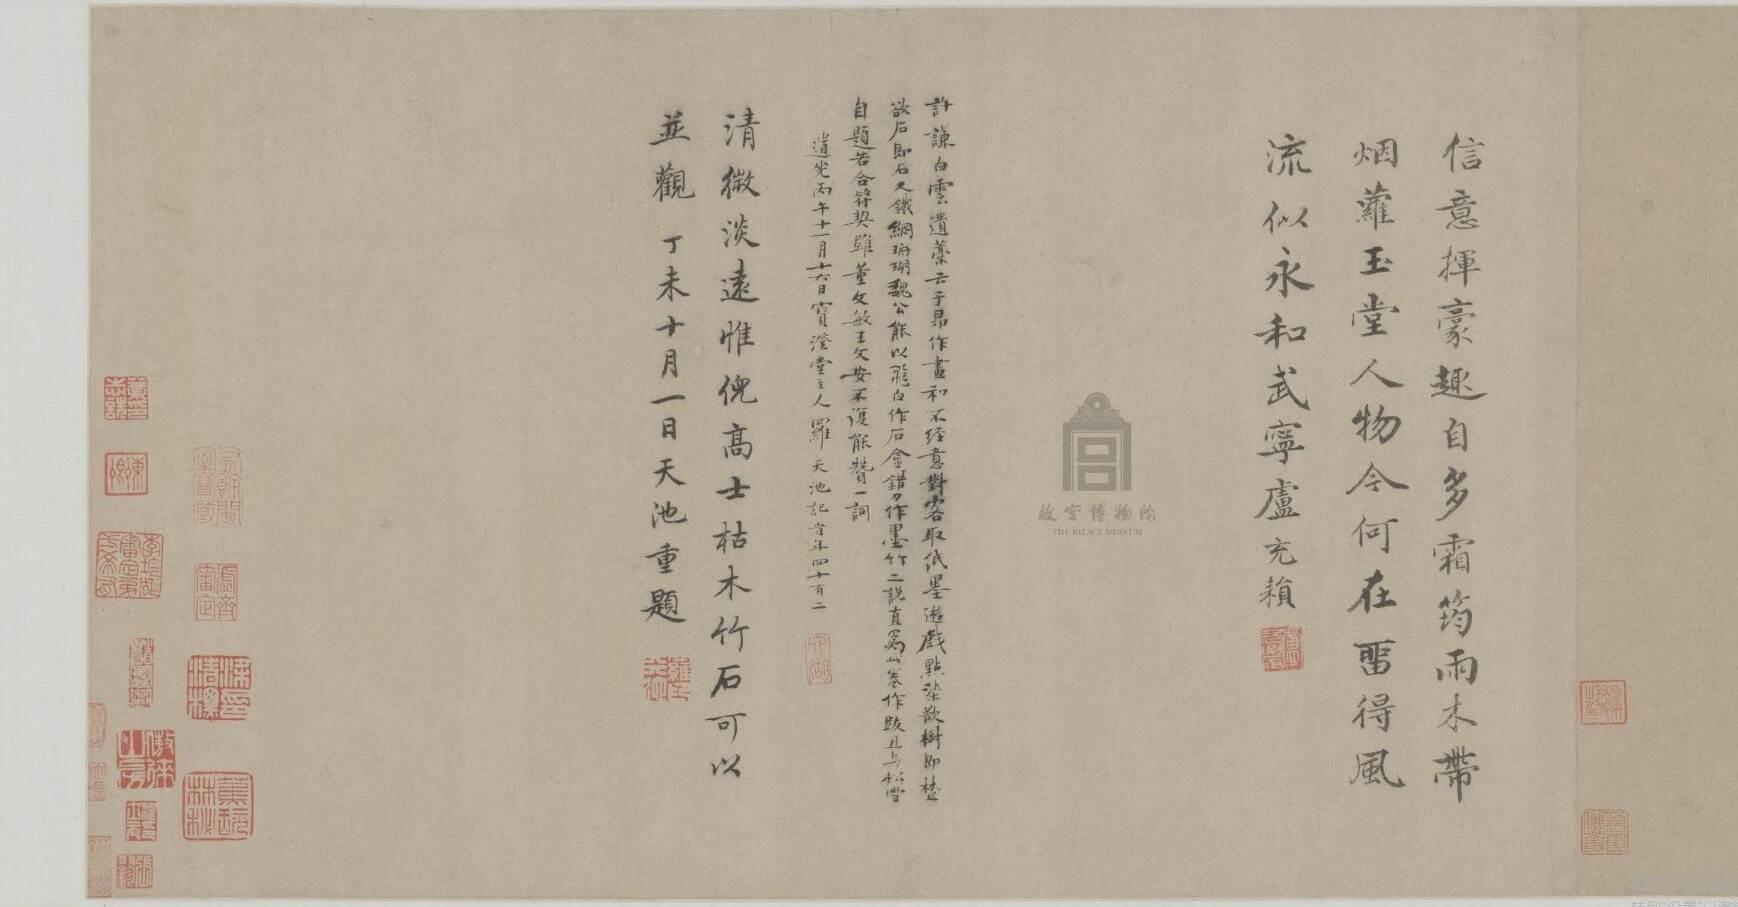 信意揮豪趣自多霜筠雨木帶
烟蘿玉堂人物今何在畱得風
流似永和武寧盧充頖
許謙白雲遺藁云子昂作畫初不經意對客取紙墨遊戲點染欲樹即樹
欲石即石又鐵網珊瑚魏公能以飛白作石金錯刀作墨竹二說直為此卷作跋且与松雪
自題若合符契雖董文敏王文安不復能贊一詞
道光丙午十一月十六日寶澄堂主人羅天池記時年四十有二
清微淡遠惟倪高士枯木竹石可以
並觀 丁未十月一日天池重題
故宮博物院
THE PALACE MUSEUM